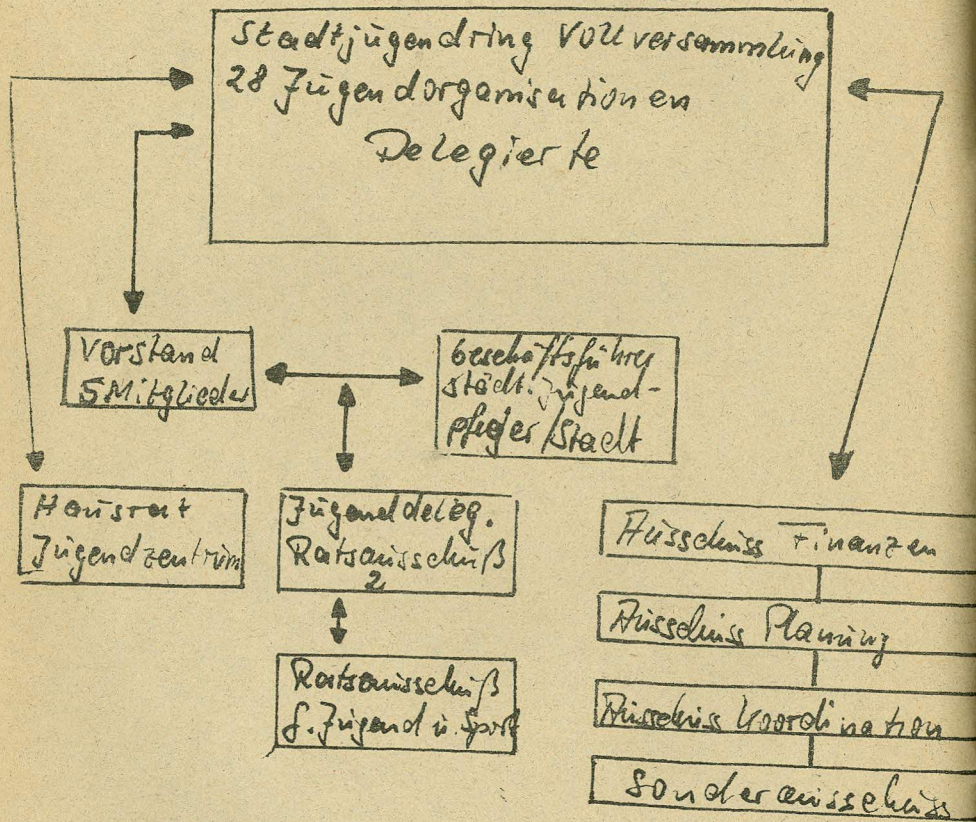 Stadtjugendring Vollversammlung
28 Jugendorganisationen
Delegierte
Vorstand
5 Mitglieder
Geschäftsführer
städt. Jugend-
pfleger/Stadt
Hausrat
Jugendzentrum
Jugenddeleg.
Ratsausschuß
2
Ratsausschuß
f. Jugend u. Sport
Ausschuss Finanzen
Ausschuss Planung
Ausschuss Koordination
Sonderausschuss